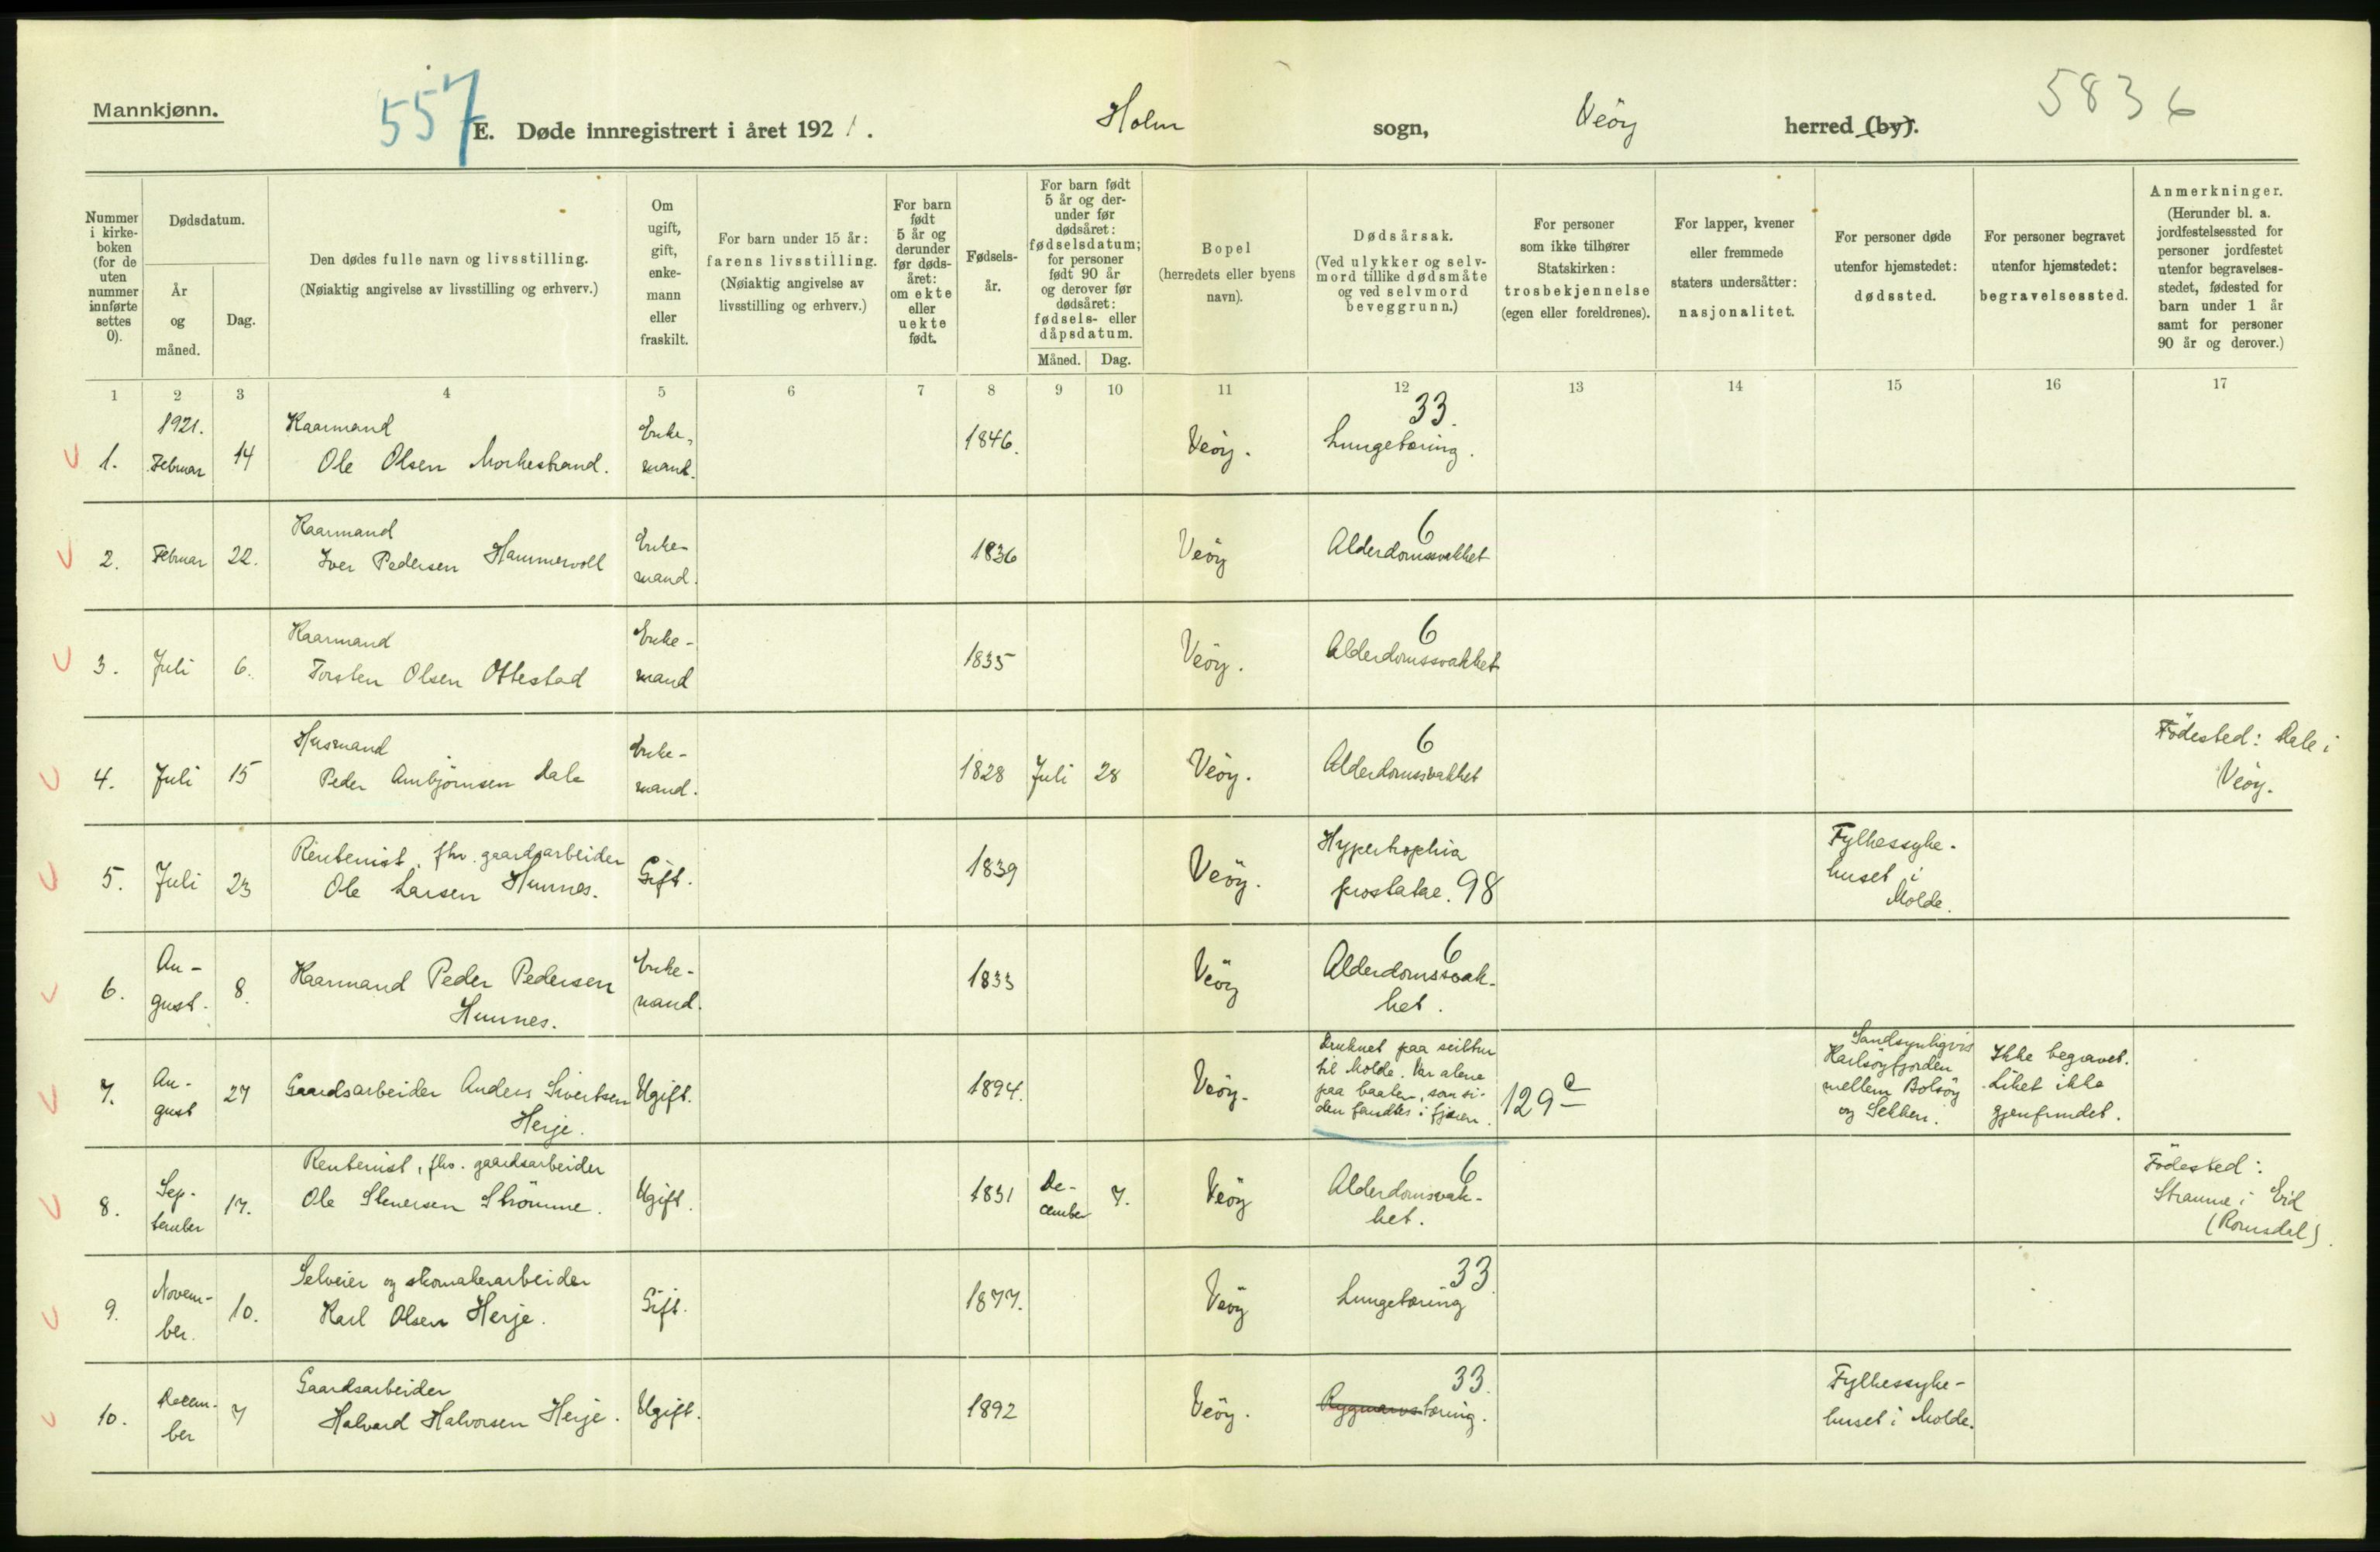 Mannkjønn.
557
E. Døde innregistrert i året 1921.
Holm sogn,
Veöy herred (by).
5836
Nummer i kirkeboken (for de uten nummer innførte settes 0).
Dødsdatum.
År og måned.
Dag.
Den dødes fulle navn og livsstilling.
(Nøiaktig angivelse av livsstilling og erhverv.)
Om ugift, gift, enkemann eller fraskilt.
For barn under 15 år: farens livsstilling.
(Nøiaktig angivelse av livsstilling og erhverv.)
For barn født 5 år og derunder før dødsåret: om ekte eller uekte født.
Fødselsår.
For barn født 5 år og derunder før dødsåret: fødselsdatum; for personer født 90 år og derover før dødsåret: fødsels- eller dåpsdatum.
Måned. Dag.
Bopel (herredets eller byens navn).
Dødsårsak.
(Ved ulykker og selvmord tillike dødsmåte og ved selvmord beveggrunn.)
For personer som ikke tilhører Statskirken: trosbekjennelse (egen eller foreldrenes).
For lapper, kvener eller fremmede staters undersåtter: nasjonalitet.
For personer døde utenfor hjemstedet: dødssted.
For personer begravet utenfor hjemstedet: begravelsessted.
Anmerkninger.
(Herunder bl. a. jordfestelsessted for personer jordfestet utenfor begravelsesstedet, fødested for barn under 1 år samt for personer 90 år og derover.)
1 2 3 4 5 6 7 8 9 10 11 12 13 14 15 16 17
1. 1921. Februar 14 Kaarmand Ole Olsen Morkestrand. Enkemand. 1846. Veöy. 33. Lungetæring.
2. Februar 22. Kaarmand Iver Pedersen Hammervoll Enkemand. 1836 Veöy 6 Alderdomssvakhet
3. Juli 6. Kaarmand Torsten Olsen Ottestad Enkemand 1835 Veöy. 6 Alderdomssvakhet
4. Juli 15 Husmand Peder Arnbjörnsen Dale Enkemand. 1828 Juli 28 Veöy. 6 Alderdomssvakhet Födested: Dale i Veöy.
5. Juli 23 Rentenist, fhv. gaardsarbeider Ole Larsen Hunnes. Gift. 1839 Veöy. Hypertrophia prostatae. 98 Fylkessykehuset i Molde.
6. August. 8. Kaarmand Peder Pedersen Hunnes. Enkemand. 1833 Veöy 6 Alderdomssvakhet.
7. August 27 Gaardsarbeider Anders Sivertsen Herje. Ugift. 1894. Veöy. Druknet paa seiltur til Molde. Var alene paa baaten, som siden fandtes i fjæren. 129 c Sandsynligvis Karlsöyfjorden mellem Bolsöy og Sekken. Ikke begravet. Liket ikke gjenfundet.
8. September 17. Rentenist, fhv. gaardsarbeider Ole Stenersen Strömme. Ugift. 1831 December 7. Veöy 6 Alderdomsvakhet. Födested: Straume i Eid (Romsdal).
9. November. 10. Selveier og skomakerarbeider Karl Olsen Herje. Gift. 1877. Veöy 33 Lungetæring
10. December 7 Gaardsarbeider Halvard Halvorsen Herje. Ugift. 1892 Veöy. 33. Ryggmarvstæring. Fylkessykehuset i Molde.